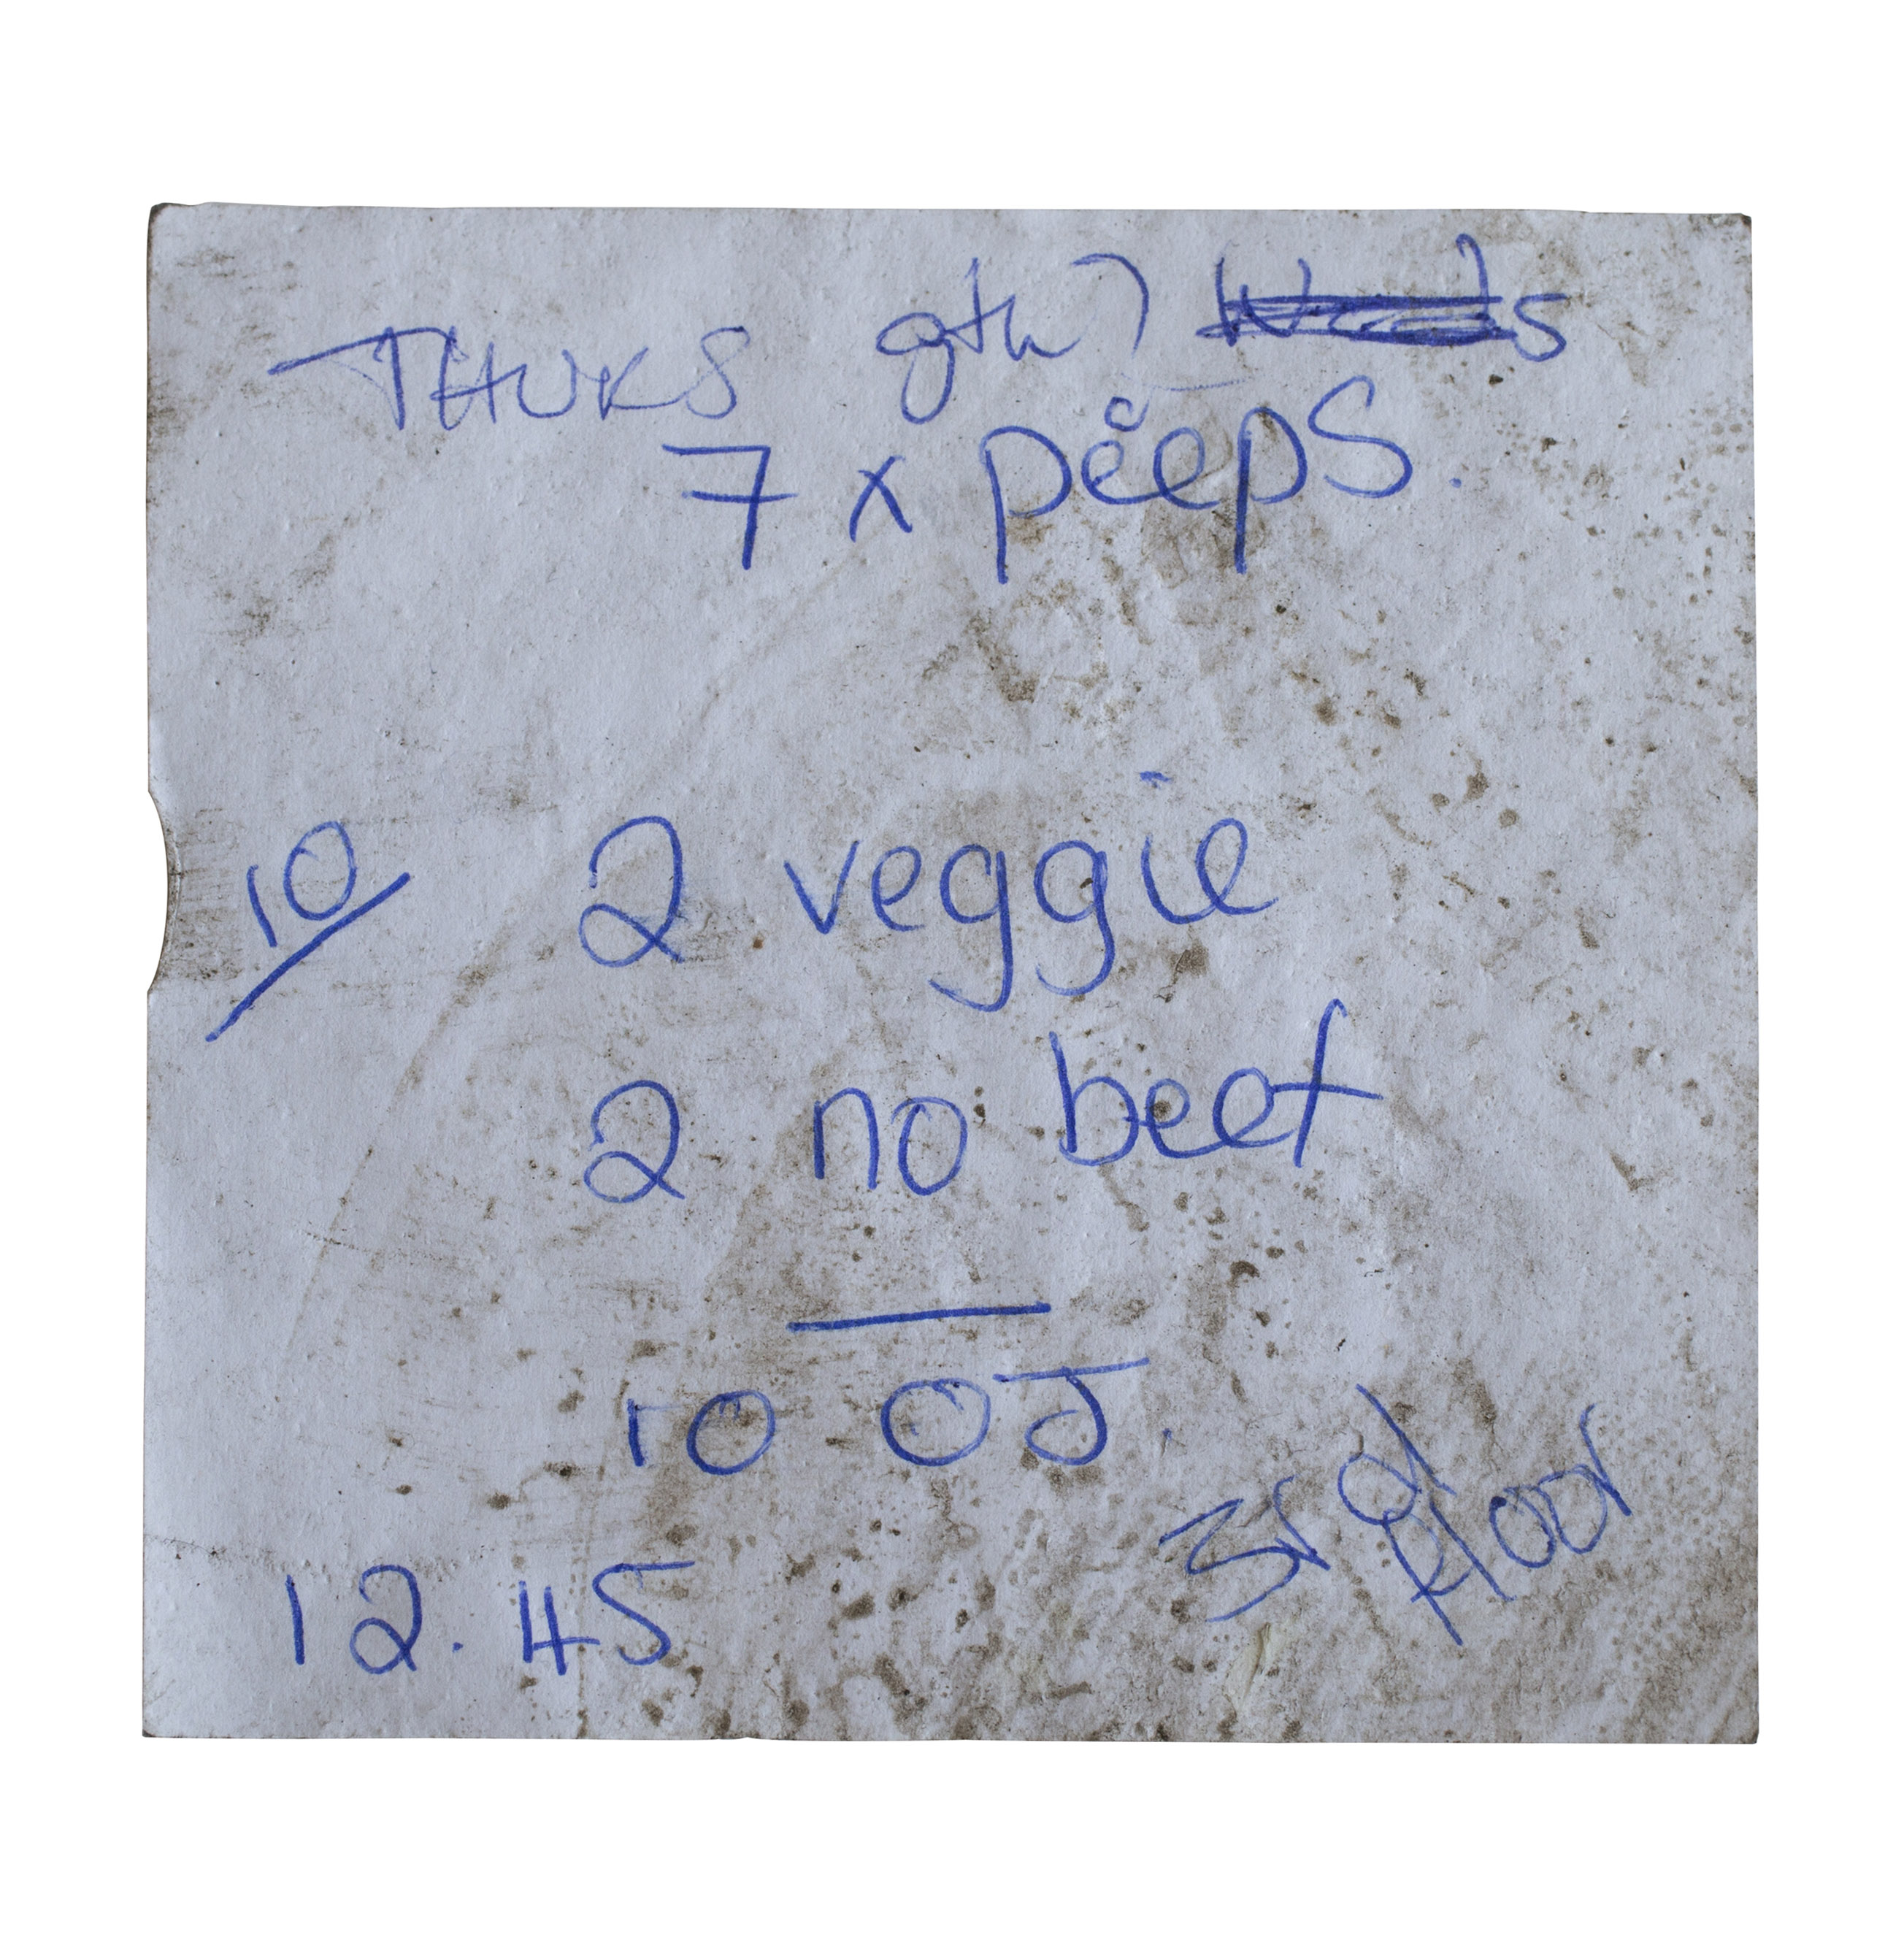 THURS 9th )
7 x peeps.
10 2 veggie
2 no beef
10 OJ.
3rd
floor
12.45